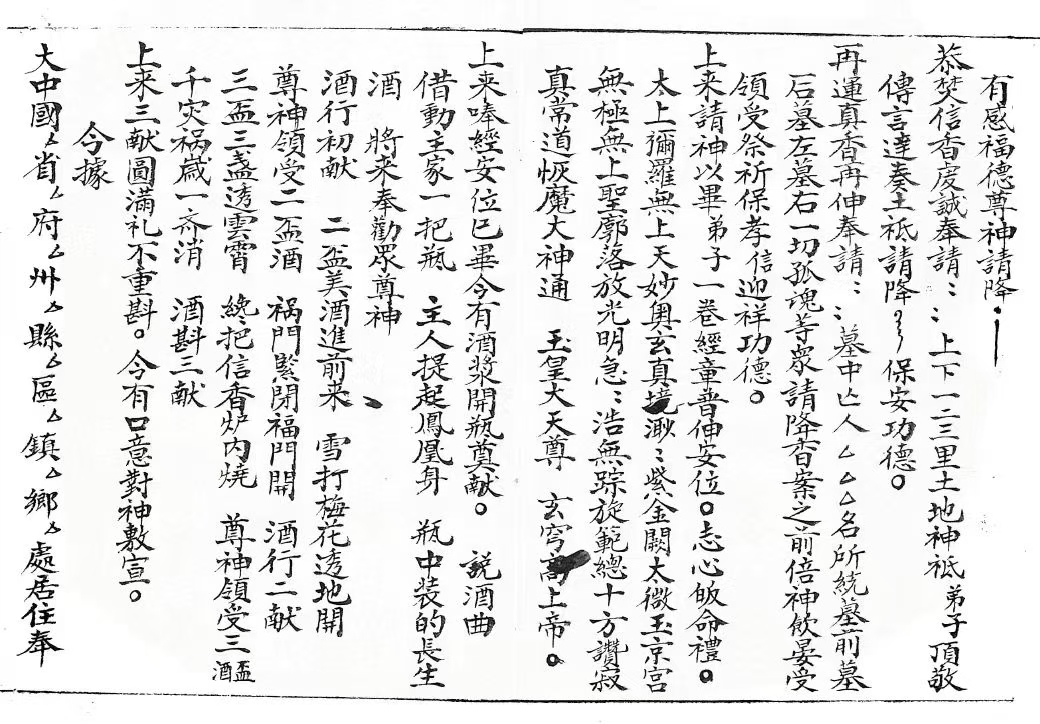 有感福德尊神請降〻
恭焚信香虔誠奉請〻〻上下一二三里土地神祇弟子頂敬
傳言達奏土祇請降〻〻保安功德。
再運真香再伸奉請〻〻墓中亡人△△△名所統墓前墓
后墓左墓右一切孤魂等衆請降香案之前倍神飲晏受
領受祭祈保孝信迎祥功德。
上来請神以畢弟子一卷經章普伸安位。志心皈命禮。
太上彌羅無上天妙奥玄真境渺〻紫金闕太微玉京宮
無極無上聖廓落放光明急〻浩無踪旋範總十方讚寂
真常道恢魔大神通 玉皇大天尊 玄穹高上帝。
上来唪經安位已畢今有酒漿開瓶奠献。 説酒曲
借動主家一把瓶 主人提起鳳凰身 瓶中装的長生
酒 將来奉勸眾尊神
酒行初献 二盃美酒進前来 雪打梅花透地開
尊神領受二盃酒 祸門緊閉福門開 酒行二献
三盃三盞透雲霄 纔把信香炉内燒 尊神領受三盃酒
千灾祸崴一斉消 酒斟三献
上来三献圓滿礼不重斟。今有口意對神敷宣。
今據
大中國△省△府△州△縣△區△鎮△鄉△處居住奉